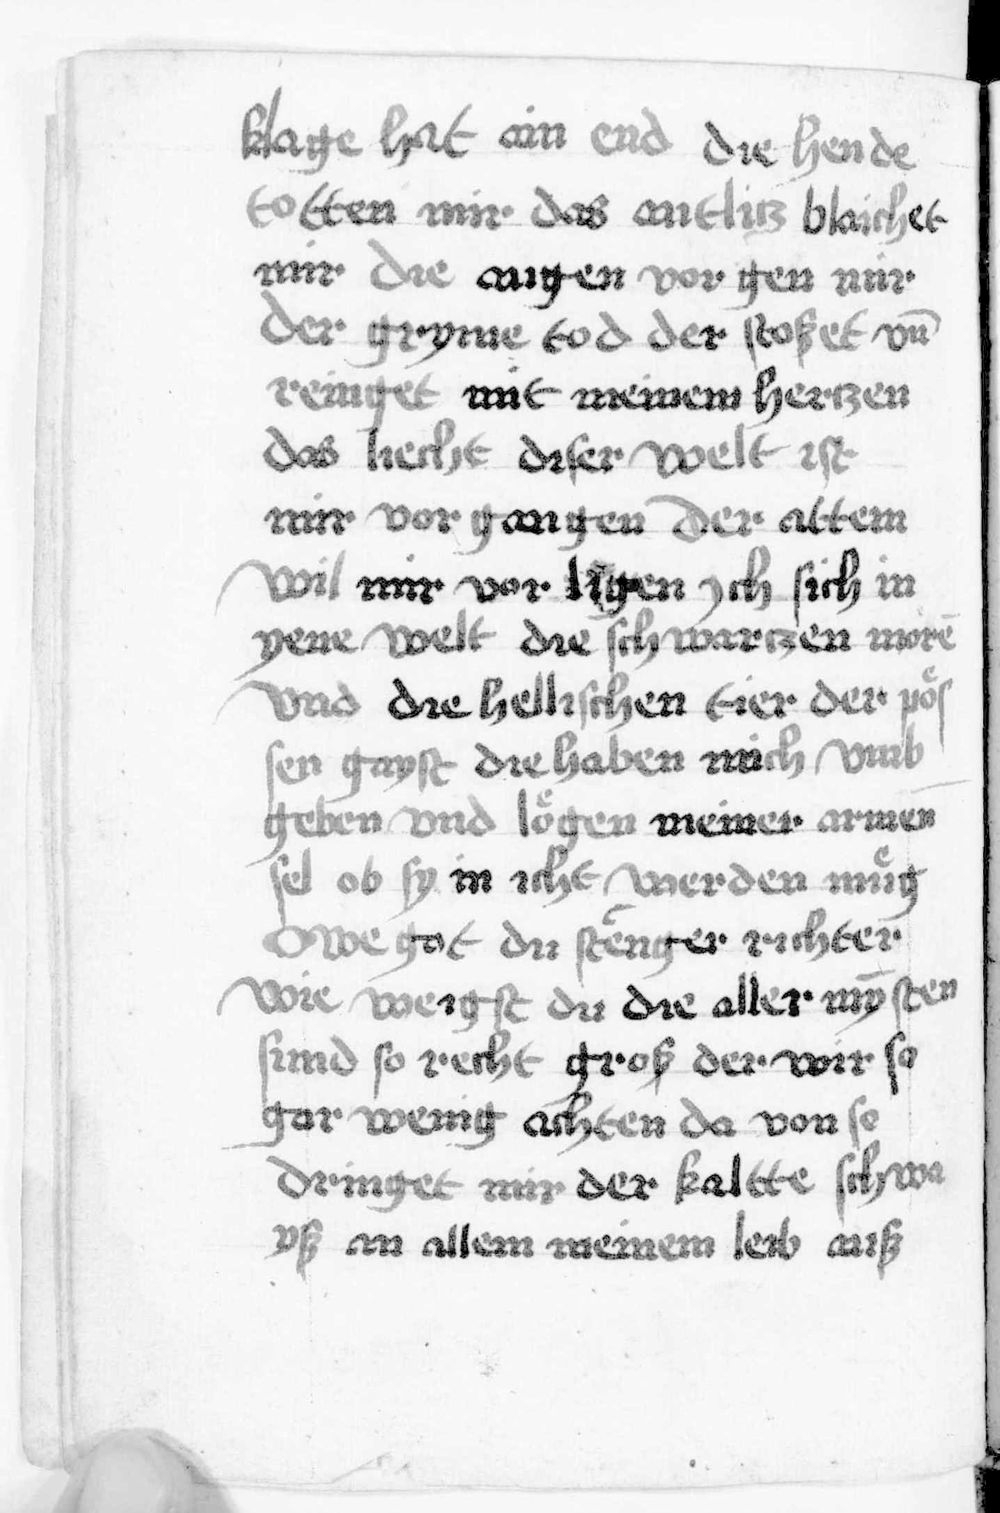 klage hat ain end die hende
totten mir das antlitz blaichet
mir die augen vor gen mir
der gryme tod der stoßet vn̄
reinget mit meinem hertzen
das liecht diser welt ist
mir vor gangen der attem
wil mir vor ligen ych sich in
yene welt die schwartzen morē
vnd die hellischen tier der pöͤs
sen gayst die haben mich vmb
geben vnd loͤgen meiner armen
sel ob sy in icht werden muͤg
O we got du stēnger richter
wie weigst du die aller mȳsten
sund so recht groß der wir so
gar wenig achten da von so
dringet mir der kaltte schwa
yß an allem meinem leib auß